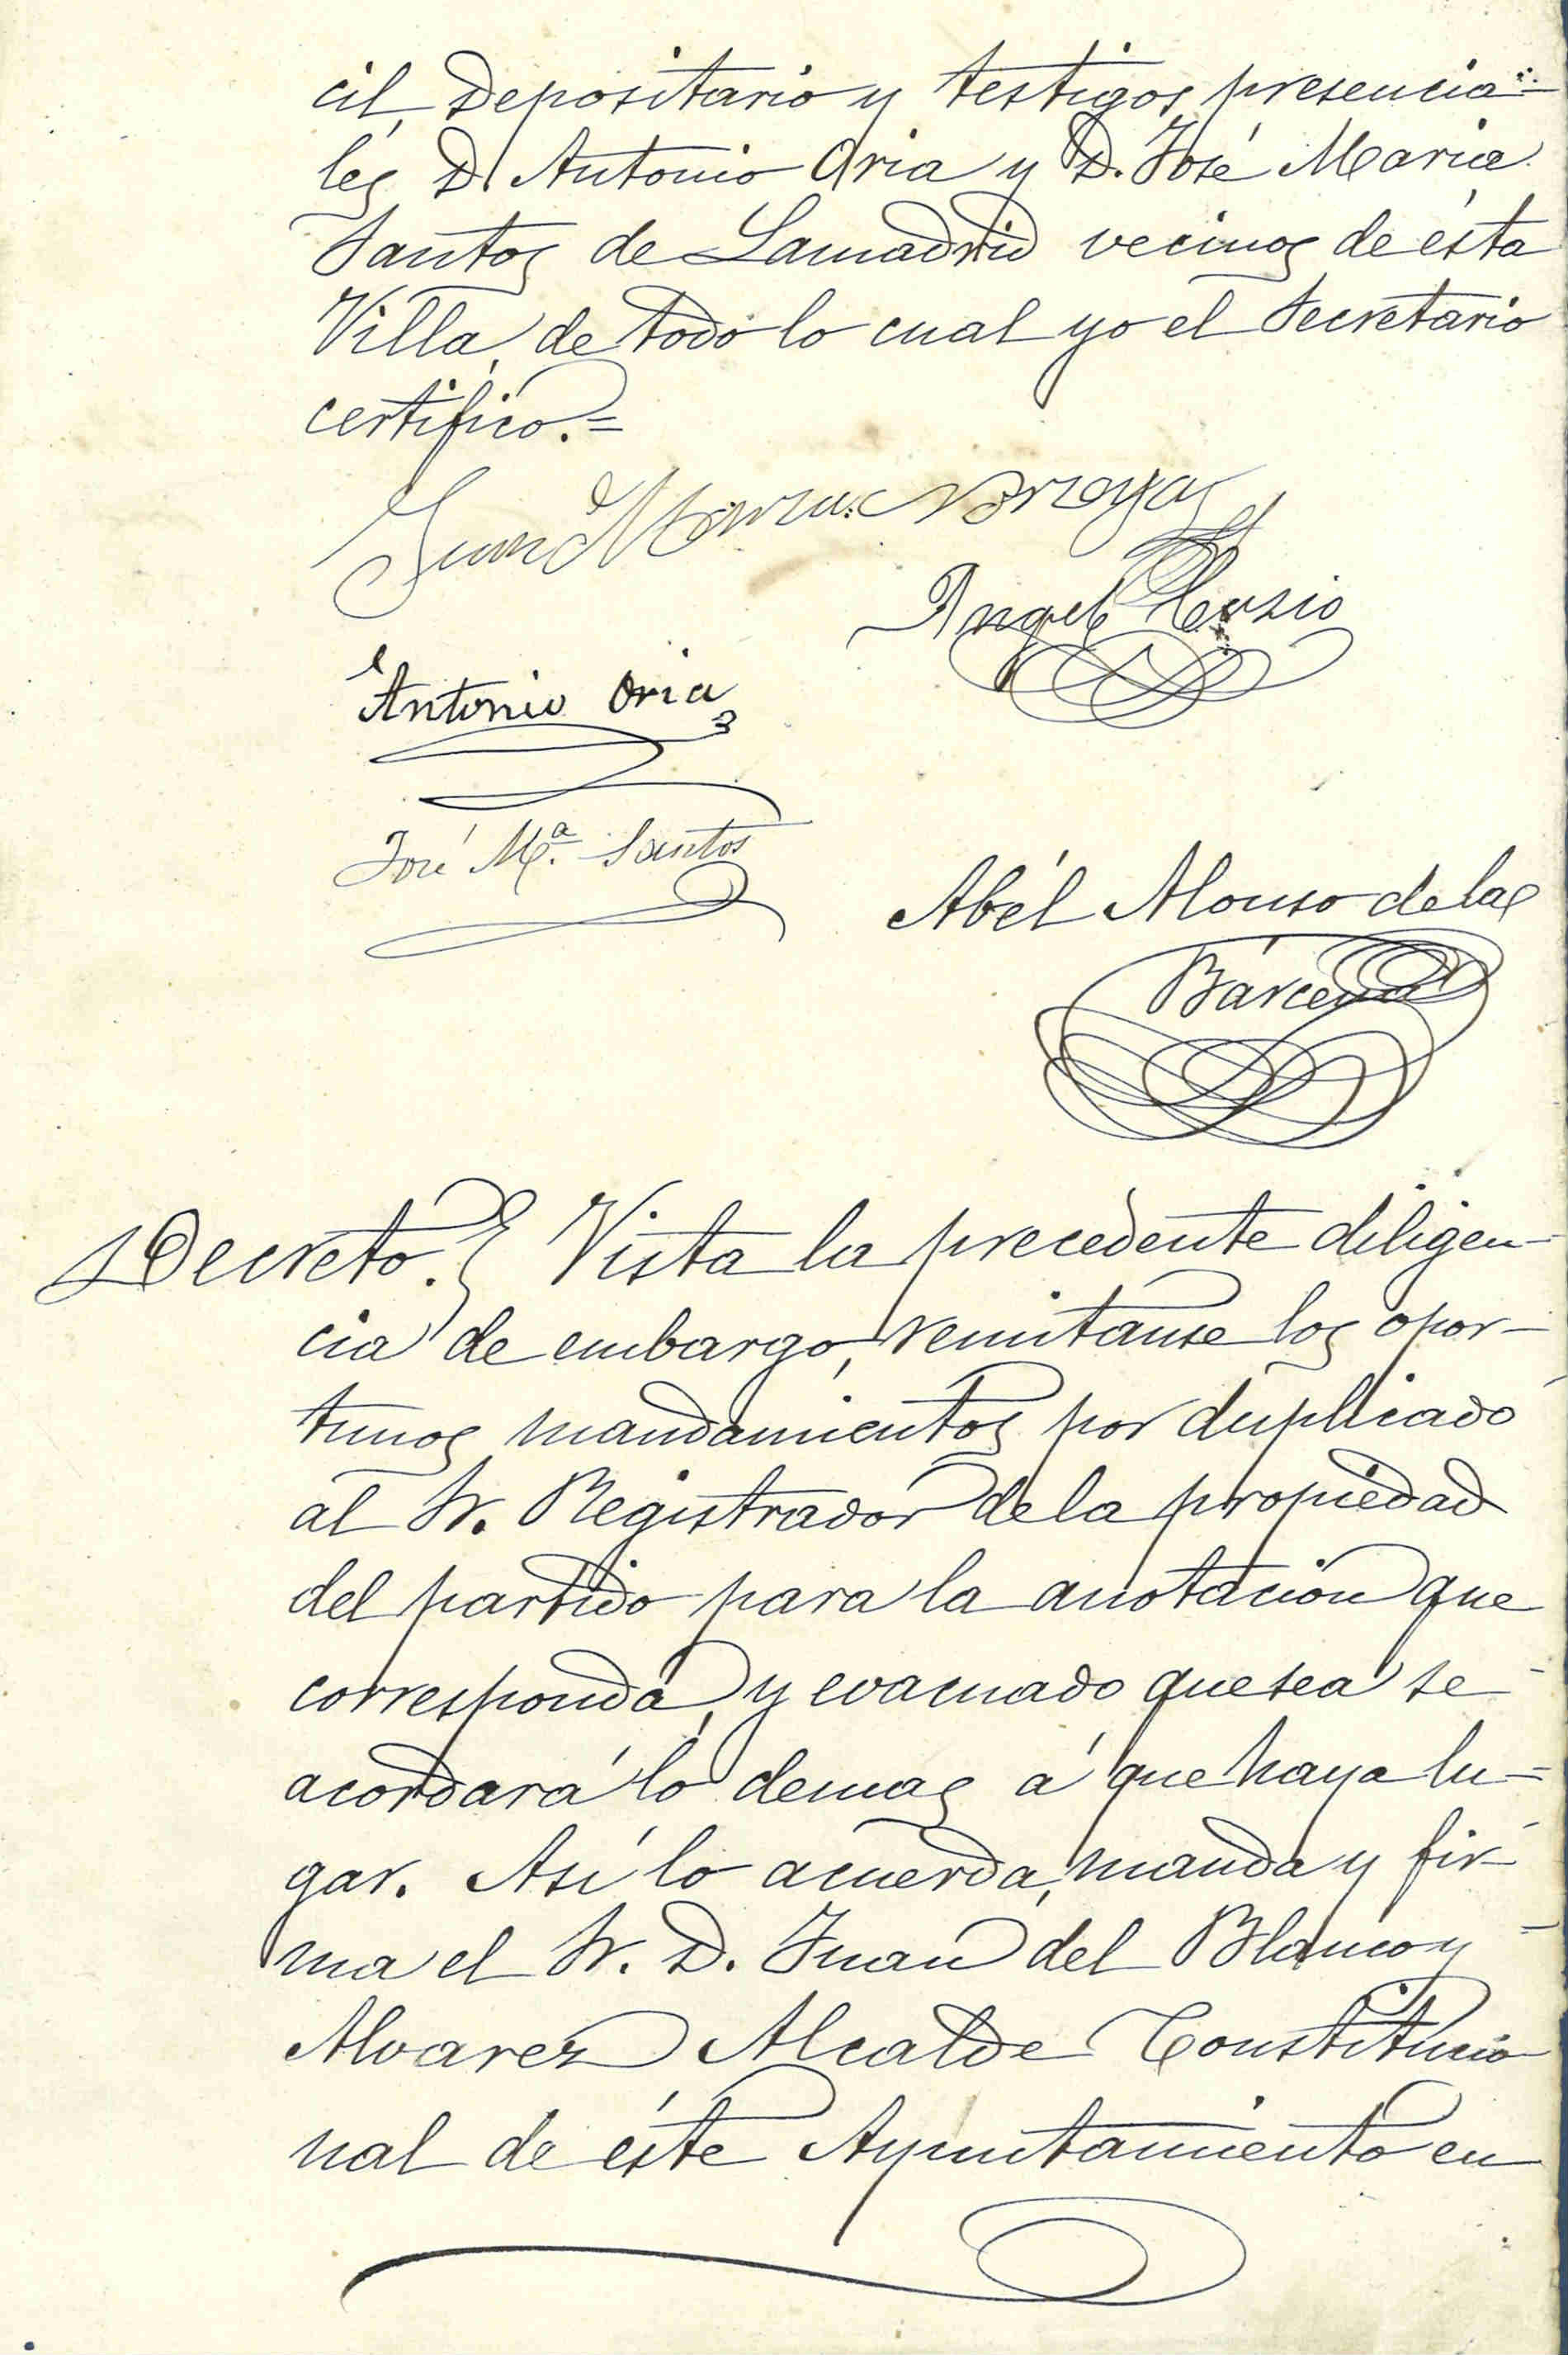 cil, Depositario y testigos presencia=
les D. Antonio Oria y D. José Maria
Santos de Lamadrid vecinos de ésta
Villa, de todo lo cual yo el Secretario
certifico.=
Juan
Angel
Antonio Oria
José Mª. Santos
Abél Alonso de la
Bárcena
Decreto. Vista la precedente diligen-
cia de embargo, remitanse los opor-
tunos mandamientos por duplicado
al Sr. Registrador de la propiedad
del partido para la anotación que
corresponda, y evacuado que sea se
acordará lo demas á que haya lu=
gar. Así lo acuerda, manda y fir-
ma el Sr. D. Juan del Blanco y
Alvarez Alcalde Constitucio
nal de éste Ayuntamiento en